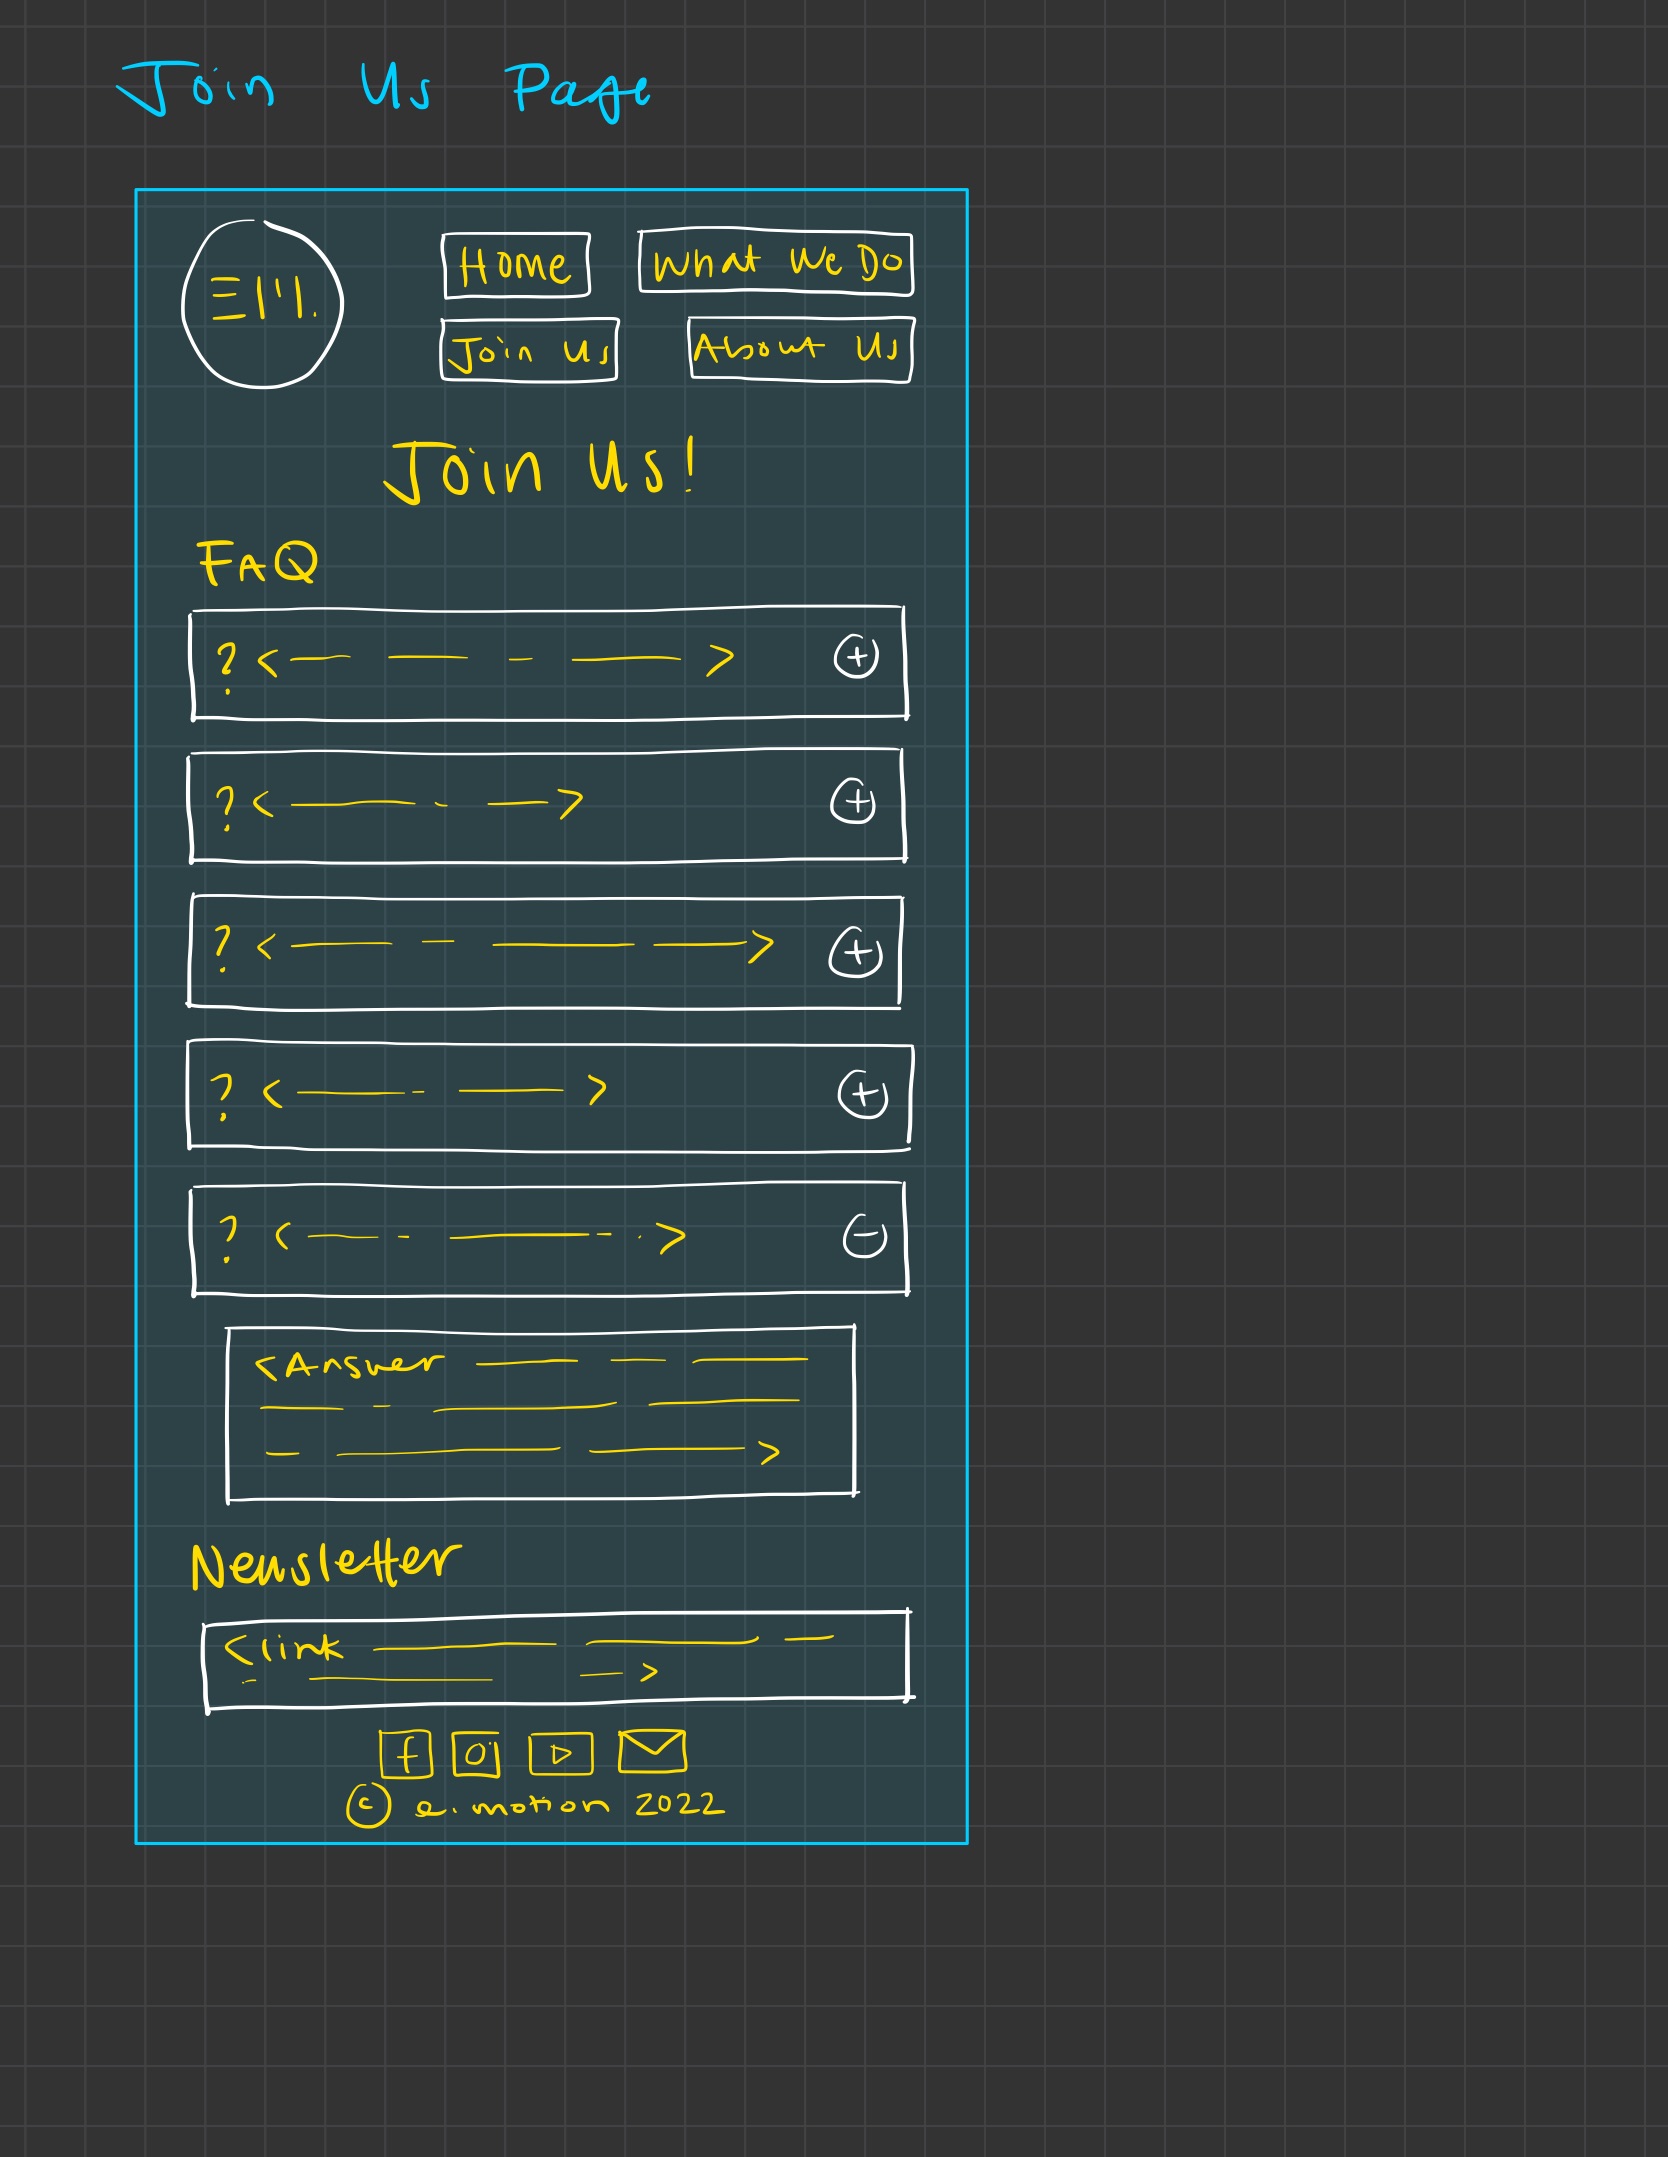 Join Us Page
Home
What We Do
Join Us
About Us
Join Us!
FAQ
? < >
? < >
? < >
? < >
? < >
<Answer
>
Newsletter
<link
>
© e.motion 2022